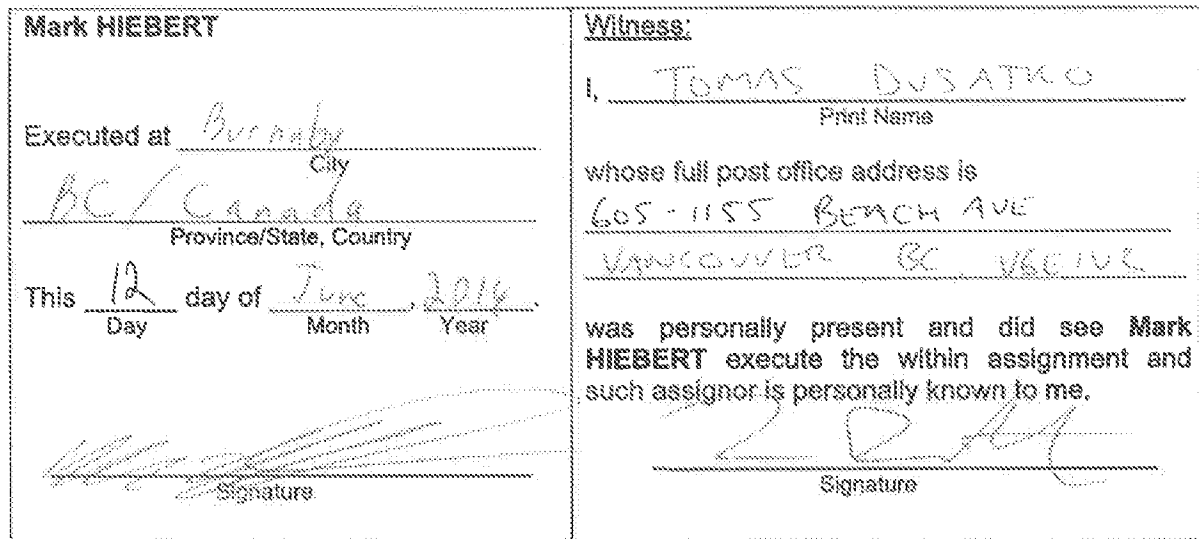 Mark HIEBERT
Executed at Burnaby
City
BC / Canada
Province/State, Country
This 12 day of June, 2014.
Day Month Year
Signature
Witness:
I, TOMAS DUSATKO
Print Name
whose full post office address is
605-1155 BEACH AVE
VANCOUVER BC
was personally present and did see Mark
HIEBERT execute the within assignment and
such assignor is personally known to me.
Signature